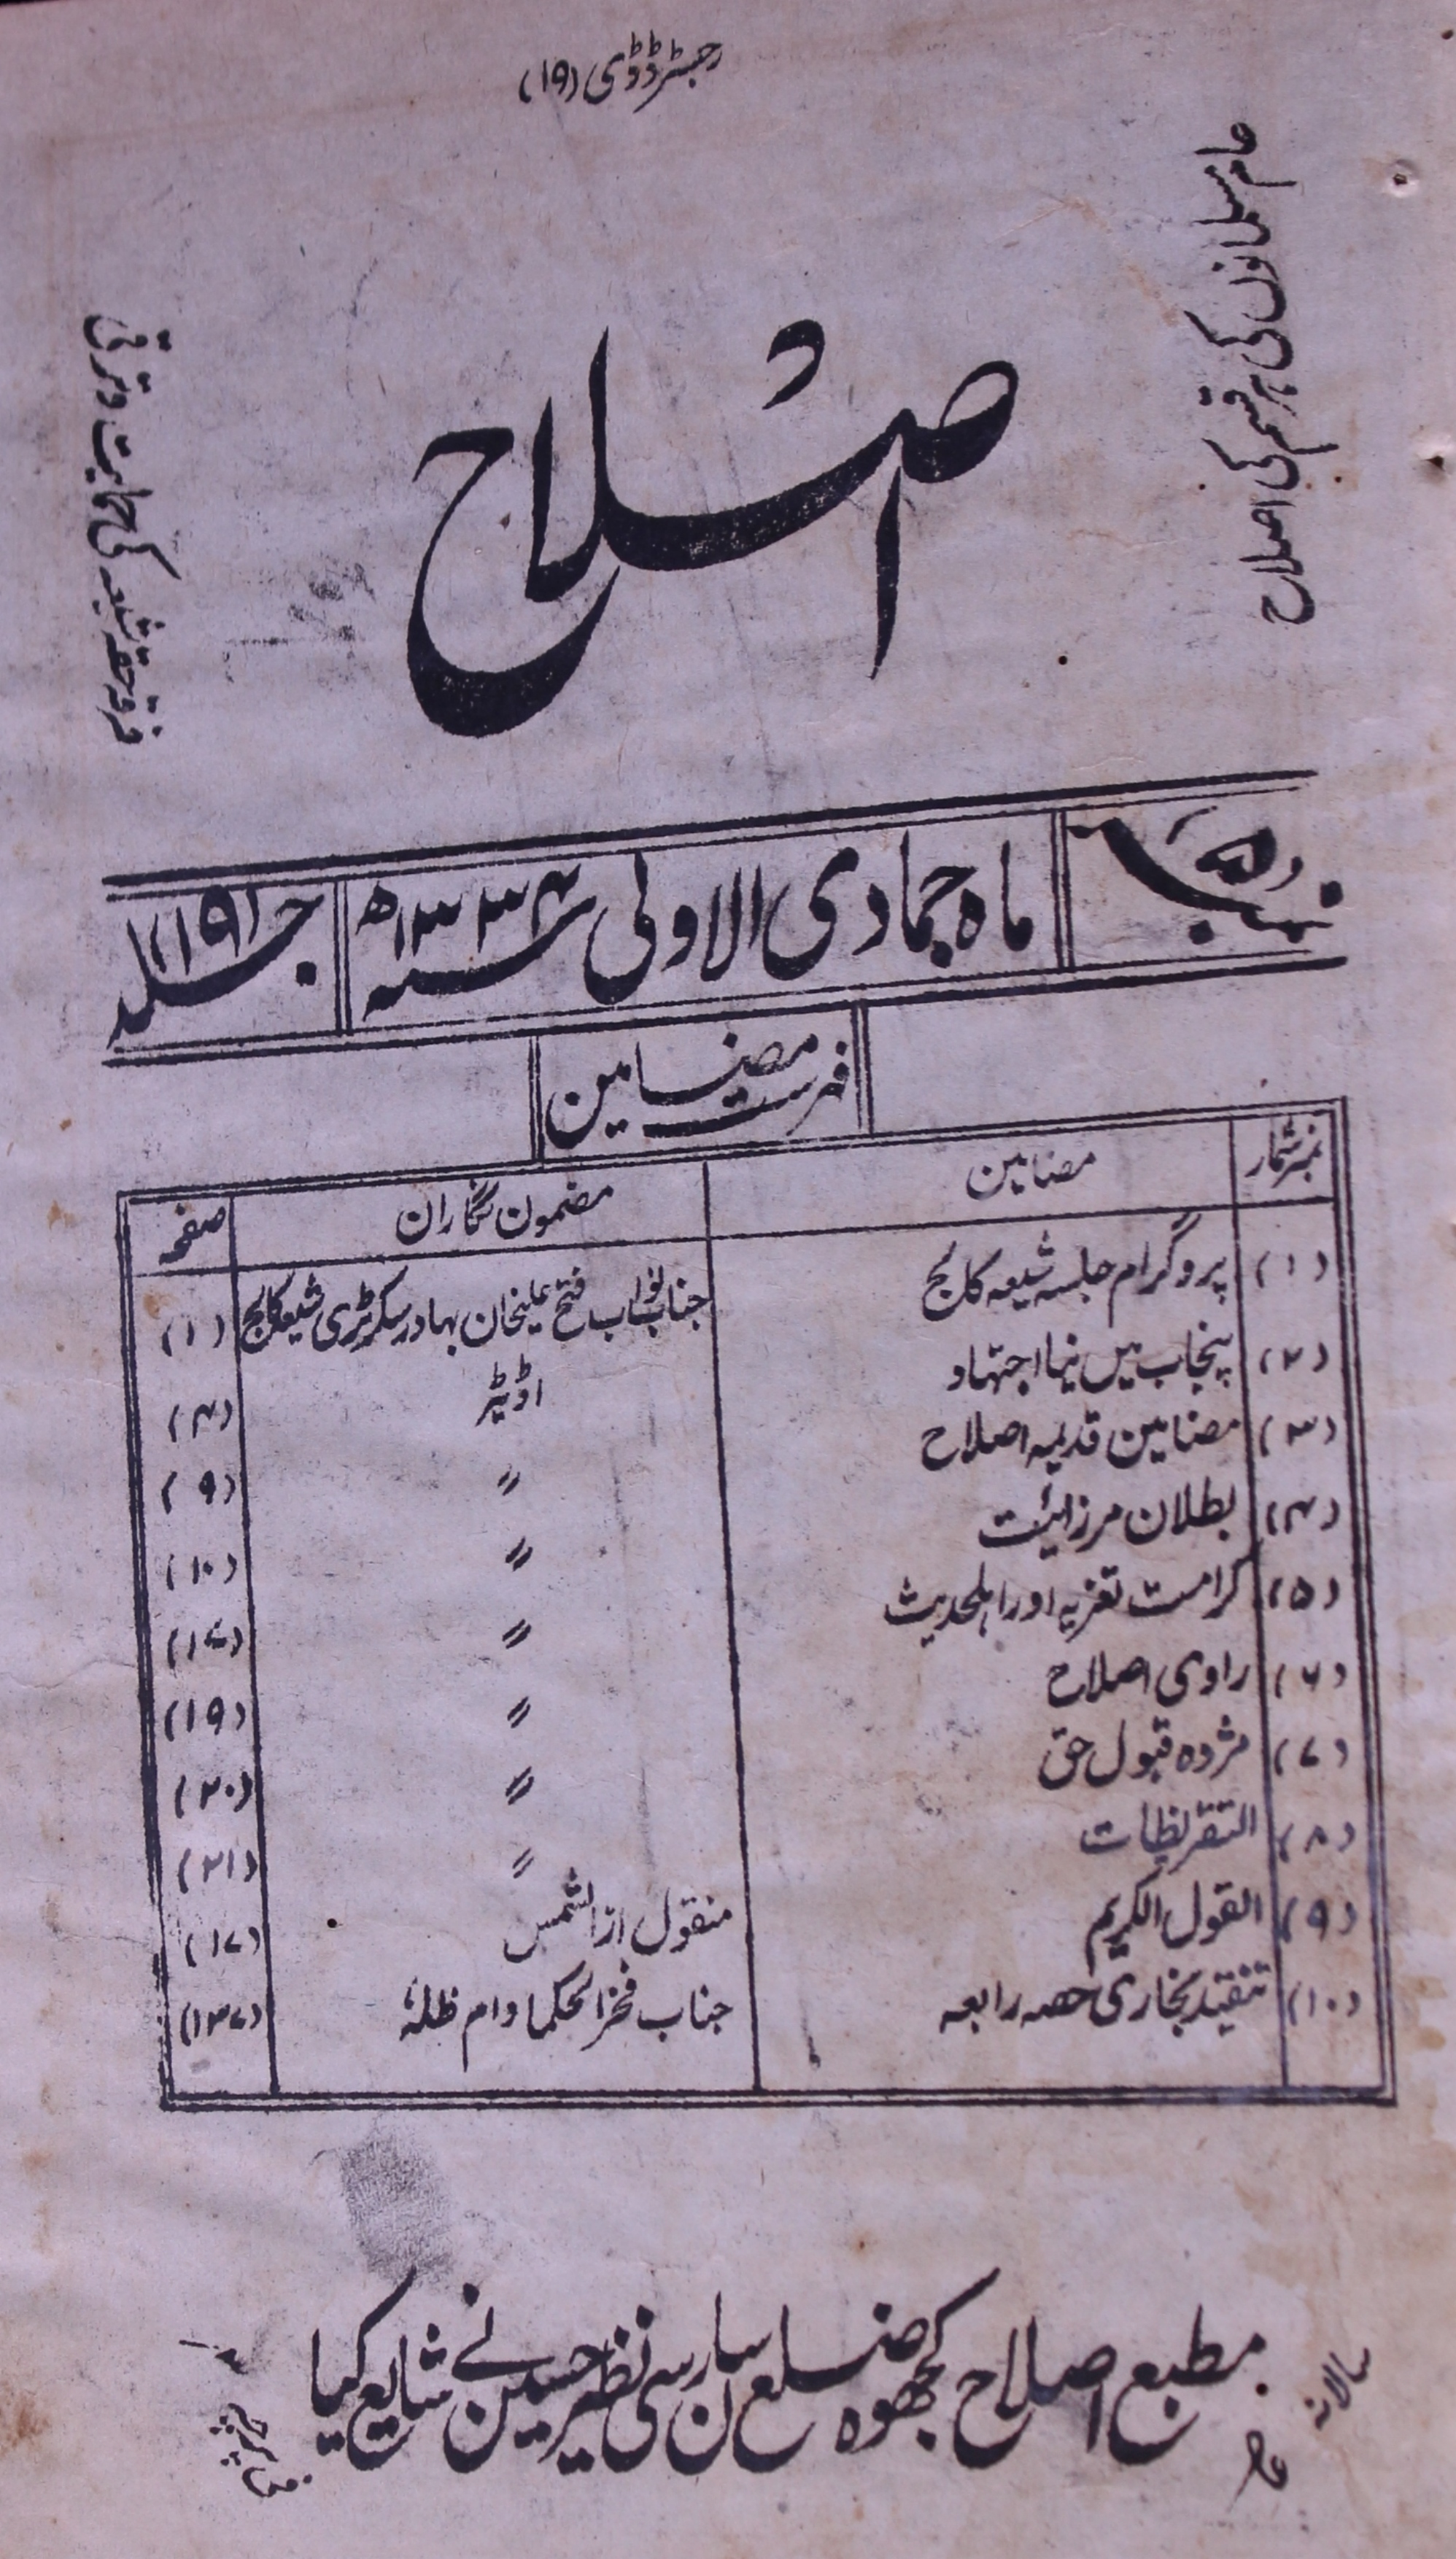 رجسٹرڈ ڈی (۱۹)
عام مسلمانوں کی ہر قسم کی اصلاح
اصلاح
فرقہ حقہ شیعہ کی حمایت و ترقی
نمبر (۵) ماہ جمادی الاولی سنہ ۱۳۳۴ھ جلد (۱۹)
فہرست مضامین
نمبر شمار مضامین مضمون نگاران صفحہ
(۱) پروگرام جلسہ شیعہ کالج جناب نواب فتح علیخان بہادر سکرٹری شیعہ کالج (۱)
(۲) پنجاب میں نیا اجتہاد اڈیٹر (۴)
(۳) مضامین قدیمہ اصلاح 〃 (۹)
(۴) بطلان مرزائیت 〃 (۱۰)
(۵) کرامت تعزیہ اور اہلحدیث 〃 (۱۶)
(۶) راوی اصلاح 〃 (۱۹)
(۷) مژدہ قبول حق 〃 (۲۰)
(۸) التقریظات 〃 (۲۱)
(۹) القول الکریم منقول از الشمس (۱۷)
(۱۰) تنقید بخاری حصہ رابعہ جناب فخر الحکما دام ظلہ (۱۳۷)
مطبع اصلاح کجھوہ ضلع سارن سی نظیر حسین نے شایع کیا
سالانہ